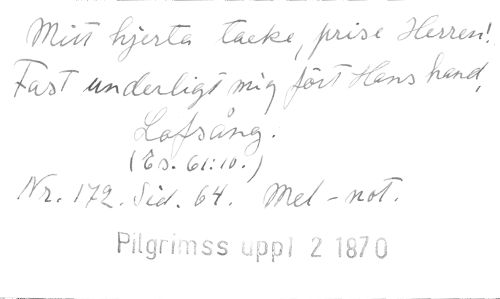 Mitt hjerta tacke, prise Herren!
Fast underligt mig fört Hans hand,
Lofsång.
(Es. 61:10.)
Nr. 172. Sid. 64. Mel-not.
Pilgrimss uppl 2 1870